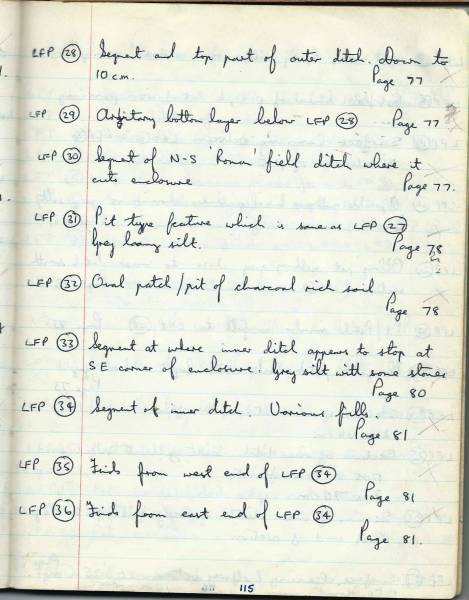 LFP (28) Segment and top part of outer ditch. Down to
10 cm. Page 77
LFP (29) Arbitrary bottom layer below LFP (28) Page 77
LFP (30) Segment of N-S Roman field ditch where it
cuts enclosure Page 77.
LFP (31) Pit type feature which is same as LFP (27)
Grey loamy silt. Page 78
LFP (32) Oval patch/pit of charcoal rich soil
Page 78
LFP (33) Segment at where inner ditch appears to stop at
SE corner of enclosure. Grey silt with some stones
Page 80
LFP (34) Segment of inner ditch. Various fills.
Page 81
LFP (35) Finds from west end of LFP (34)
Page 81
LFP (36) Finds from east end of LFP (34)
Page 81.
115